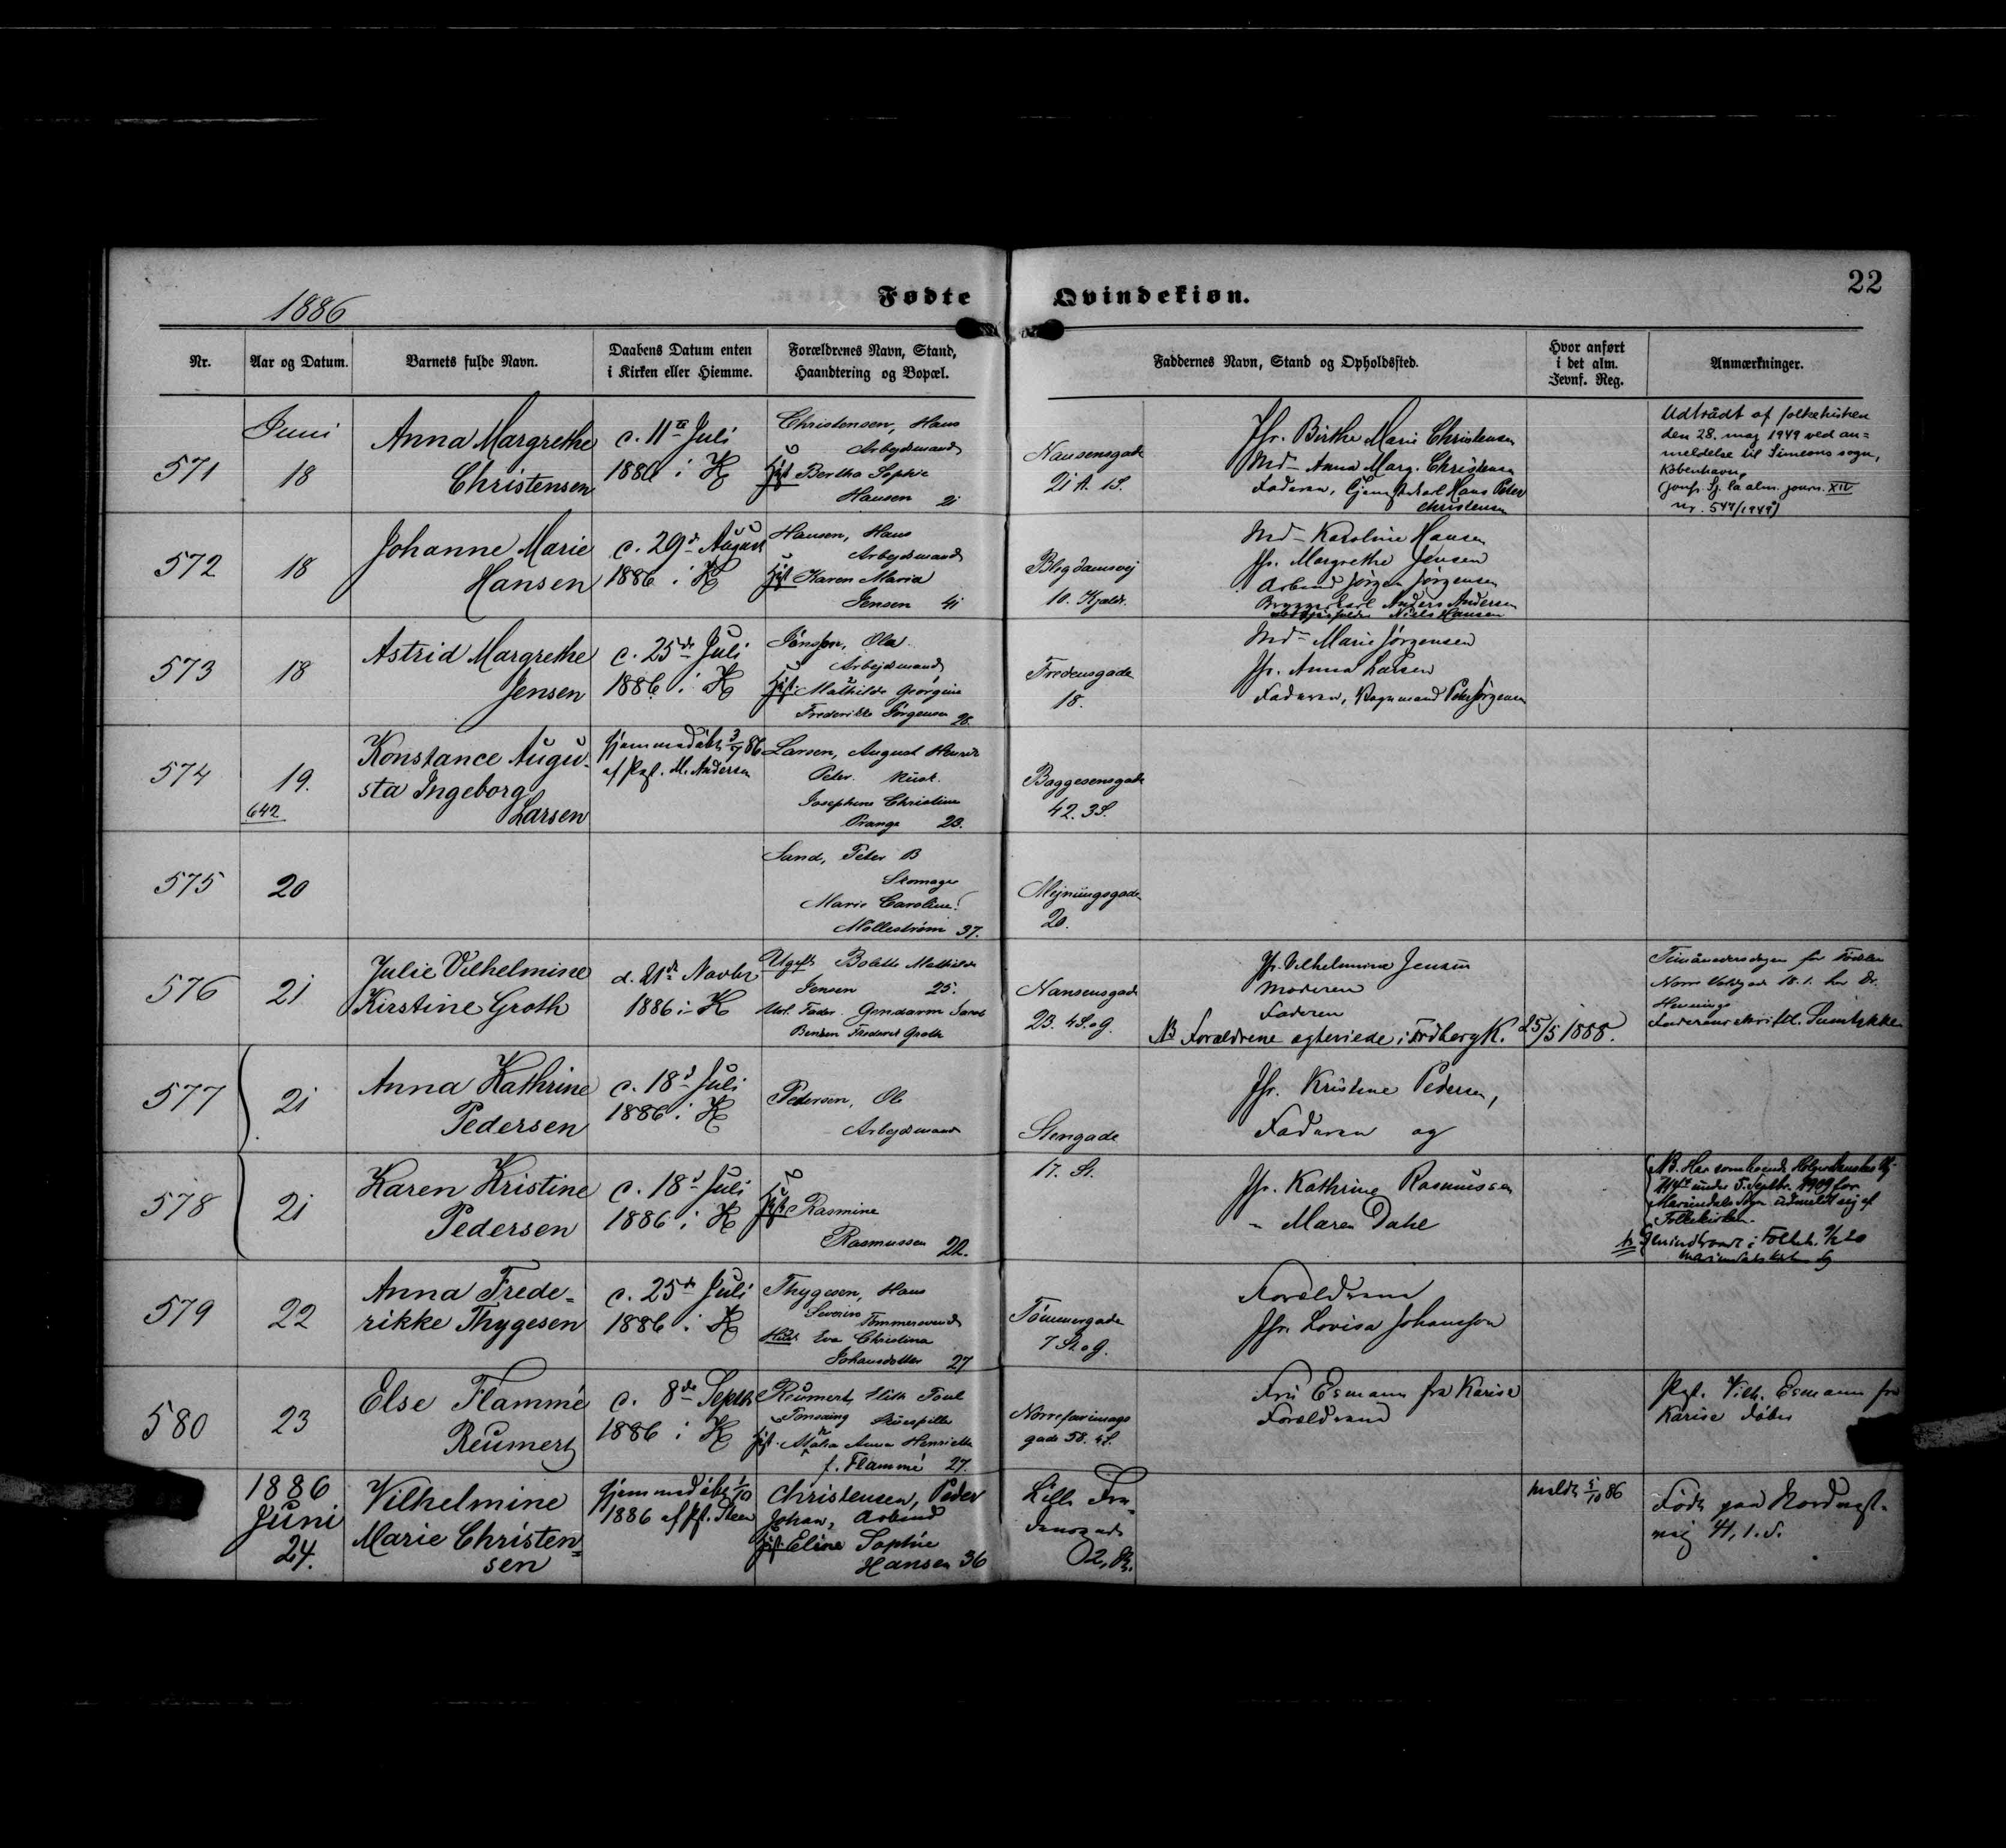 22
1886
Fødte Qvindekiøn.
Nr.
Aar og Datum.
Barnets fulde Navn.
Daabens Datum enten
i Kirken eller Hiemme.
Forældrenes Navn, Stand,
Haandtering og Bopæl.
Faddernes Navn, Stand og Opholdssted.
Hvor anført
i det alm.
Jevnf. Reg.
Anmærkninger.
571
Juni
18
Anna Margrethe
Christensen
c. 11te Juli
1886 i K
Christensen, Hans
Arbejdsmand
Hust Bertha Sophie
Hansen 21
Nansensgade
21 A. 1S.
Jfr. Birthe Marie Christensen
Md. Anna Marg. Christensen
Faderen, Hans Peter
Christensen
Udtrådt af folkekirken
den 28. maj 1949 ved an=
meldelse til Simeons sogn,
København,
(jvnf. Sj. la alm. journ. XIV
nr. 544/1949)
572
18
Johanne Marie
Hansen
c. 29de August
1886 i K
Hansen, Hans
Arbejdsmand
Hust Karen Marie
Jensen 41
Blegdamsvej
10. Kjæld.
Md Karoline Hansen
Jfr. Margrethe Jensen
Arbmd Jørgen Jørgensen
Bryggerkarl Anders Andersen
Niels Hansen
573
18
Astrid Margrethe
Jensen
c. 25de Juli
1886 i K
Jönsson, Ola
Arbejdsmand
Hust. Mathilde Georgine
Frederikke Jørgensen 28.
Fredensgade
18.
Md Marie Jørgensen
Jfr. Anna Larsen
Faderen, Vognmand Peter Jørgensen
574
19.
642
Konstance Augu-
sta Ingeborg
Larsen
Hjemmedøbt 3/7 86
af Pgl. M. Andersen
Larsen, August Henrik
Peter. Kusk.
Josephine Christine
Prange 23.
Baggesensgade
42. 3S.
575
20
Sand, Peter B
Skomager
Marie Caroline
Møllestrøm 37.
Mejnungsgade
20.
576
21
Julie Vilhelmine
Kirstine Groth
d. 21de Novbr
1886 i K
Ugift Bolette Mathilde
Jensen 25.
Udl. Fader. Gendarm Jacob
Bentzen Frederik Groth
Nansensgade
23. 4S. o G.
Jfr. Vilhelmine Jensen
Moderen
Faderen
NB Forældrene ægteviede i Frdberg K. 25/5 1888.
Timaanedersdagen før Fødslen
Nørre Voldgade 18. 1. hos Dr.
Hennings
Faderens skriftl. Samtykke
577
21
Anna Kathrine
Pedersen
c. 18d Juli
1886 i K
Pedersen, Ole
Arbejdsmand
Stengade
17. St.
Jfr. Kristine Pedersen,
Faderen og
578
21
Karen Kristine
Pedersen
c. 18d Juli
1886 i K
Hust Rasmine
Rasmussen 22.
Jfr. Kathrine Rasmussen
" Maren Dahl
NB. Har som boende
under 5. Septbr. 1909 for
Mariendals Sogn udmeldt sig af
Folkekirken.
Genindtraadt i Folkek.
579
22
Anna Frede=
rikke Thygesen
c. 25de Juli
1886 i K
Thygesen, Hans
Severin Tømmersvend
Hust Eva Christina
Johansdotter 27
Tømmergade
7 St. o G.
Forældrene
Jfr. Lovisa Johansson
580
23
Else Flammé
Reumert
c. 8de Septbr
1886 i K
Reumert, Elith Poul
Ponsaing Skuespiller
Hust. Athalia Anna Henriette
f. Flammé 27.
Nørrefarimags
gade 58. 4S.
Fru Esmann fra Karise
Forældrene
Pgl. Vilh. Esmann fra
Karise døbte
1886
Juni
24.
Vilhelmine
Marie Christen=
sen
Hjemmedøbt 1/10
1886 af Pgl. Steen
Christensen, Peder
Johan, Arbmd
Hust Eline Sophie
Hansen 36
Lille
2, St.
meldt 5/10 86
Født paa
41, 1. S.